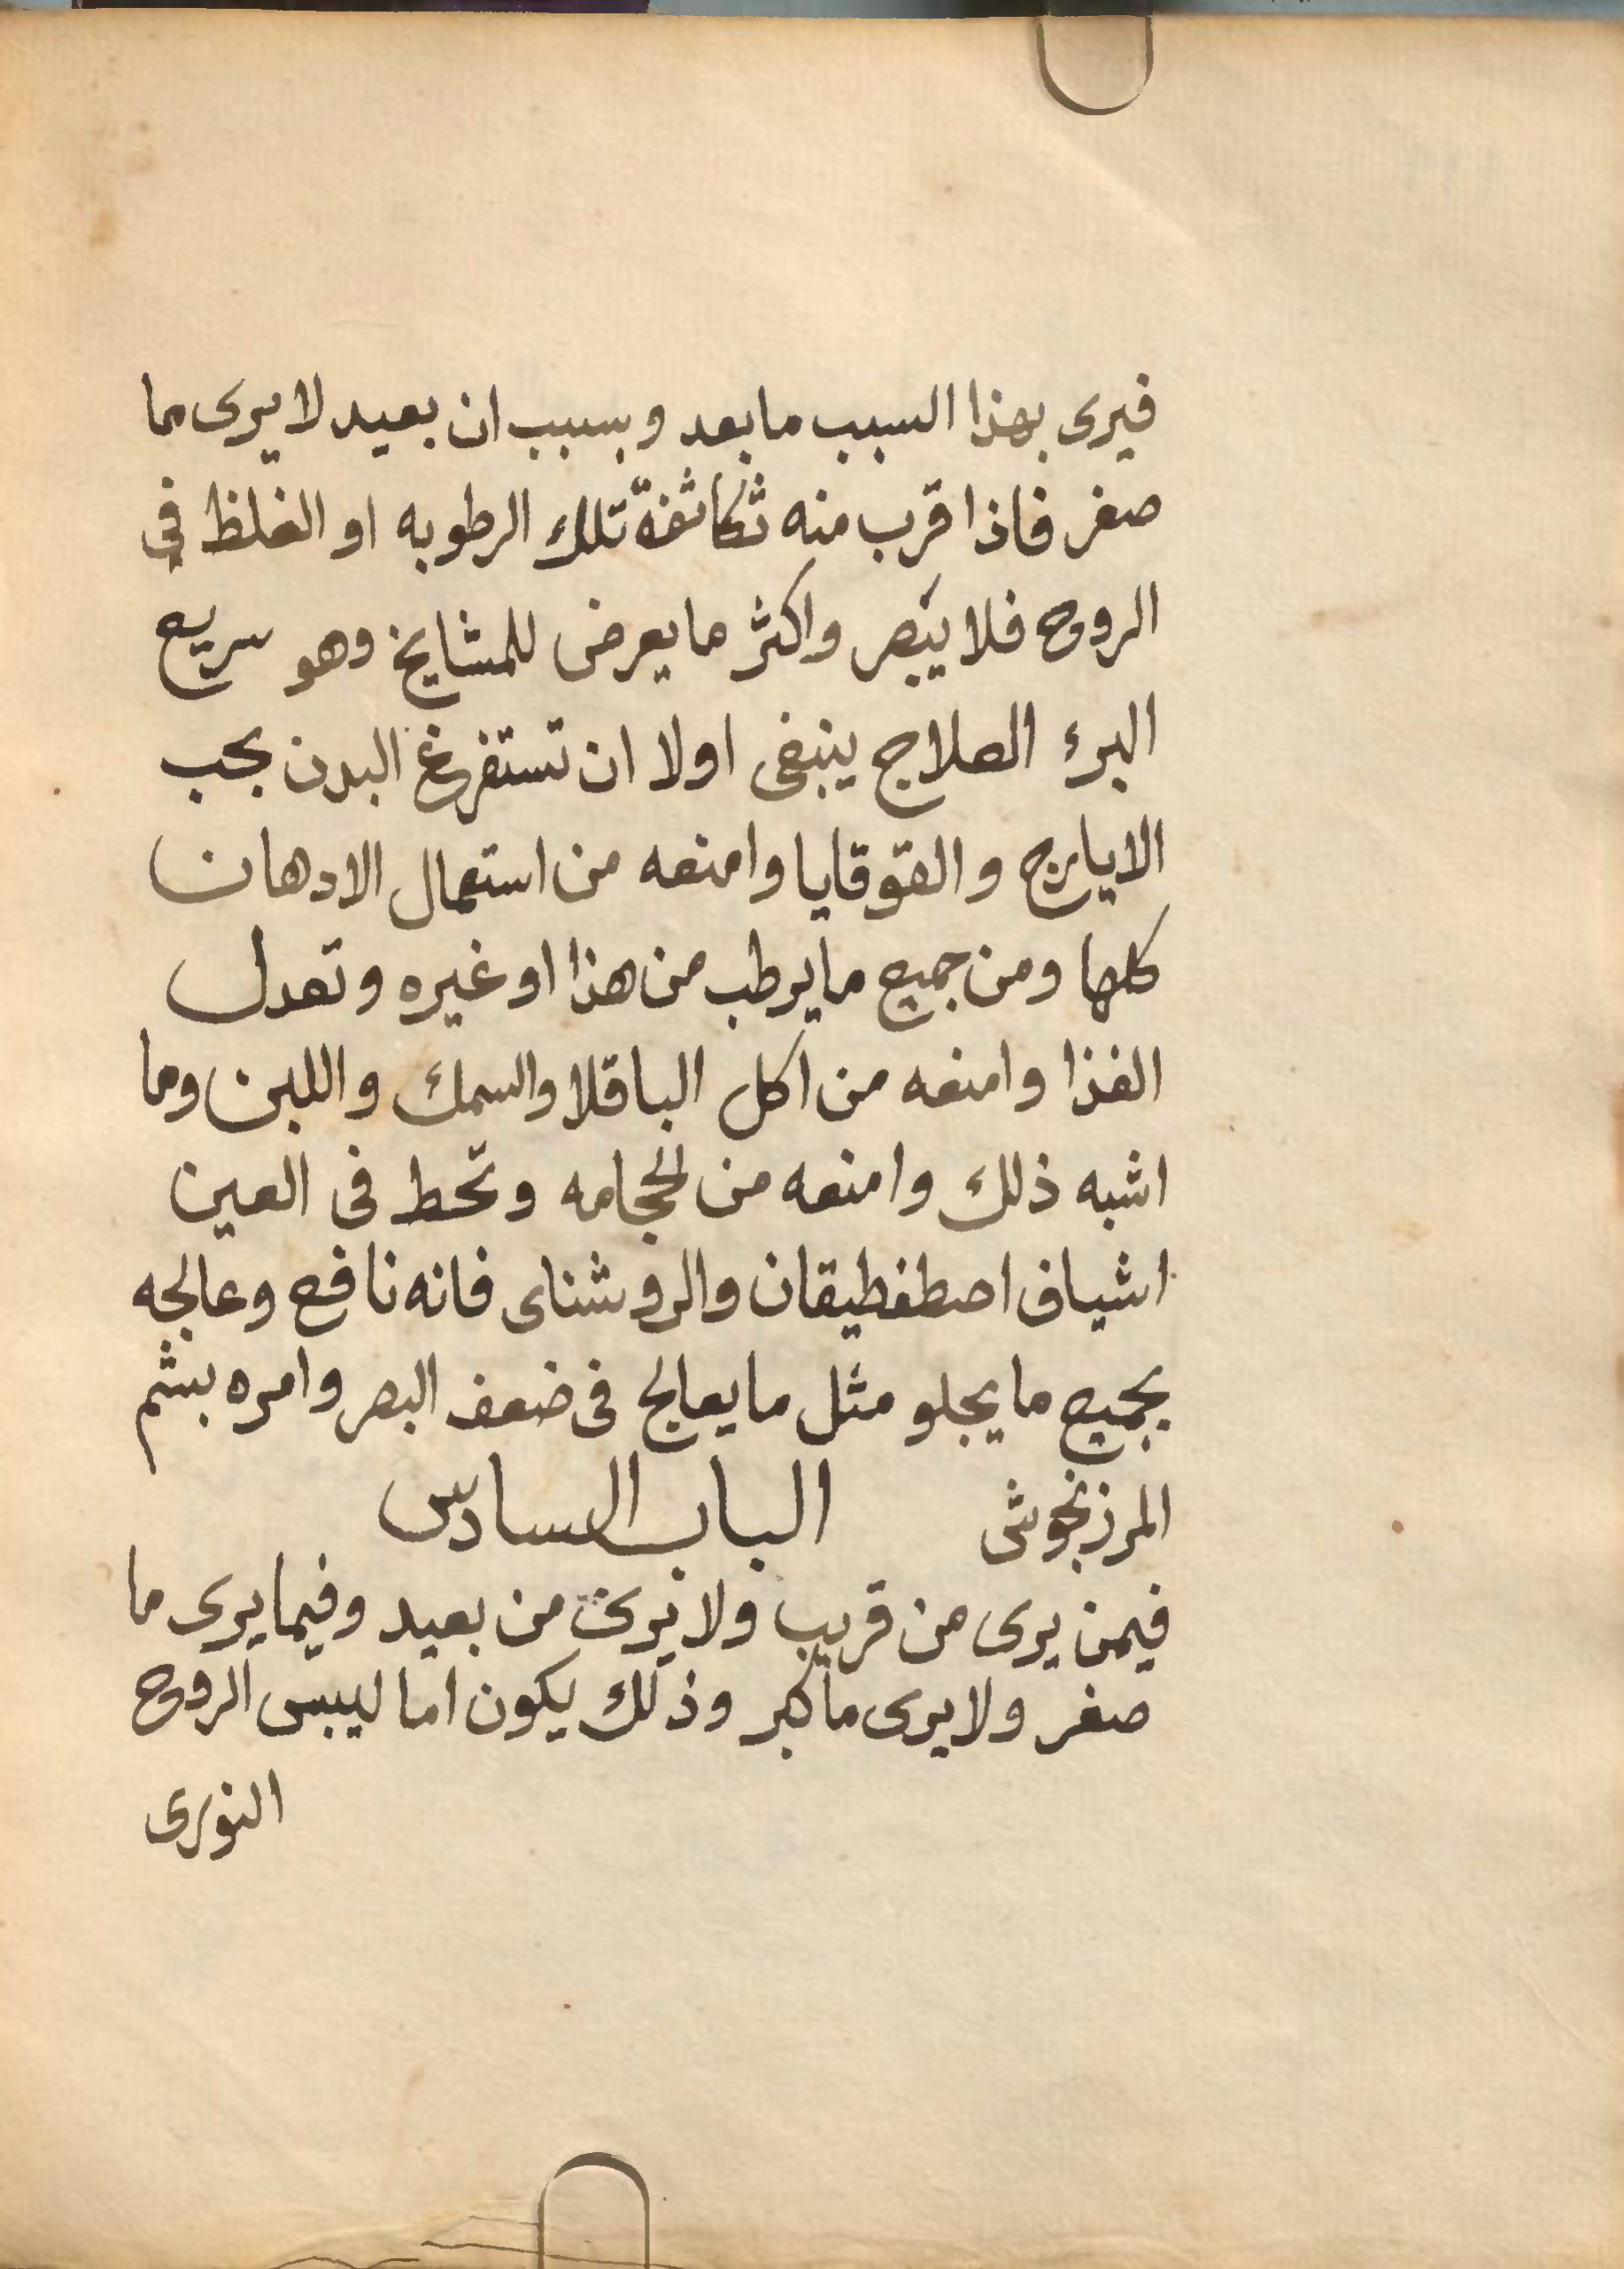 فيرى بهذا السبب ما بعد وبسبب ان بعيد لا يرى مما
صغر فاذا قرب منه تكاثفة تلك الرطوبه او الغلظ في
الروح فلا يبصر واكثر ما يعرض للمشايخ وهو سريع
البرء العلاج ينبغى اولا ان تستفرغ البدن بحب
الايارج والقوقايا وامنعه من استعمال الادهان
كلها ومن جميع ما يرطب من هذا او غيره وتعدل
الغذا وامنعه من اكل الباقلا والسمك واللبن وما
اشبه ذلك وامنعه من الحجامه وتحط فى العين
اشياف اصطفطيقان والروشناى فانه نافع وعالجه
بجميع ما يجلو مثل ما يعالج فى ضعف البصر وامره بشم
المرزنجوش الباب السادس
فيمن يرى من قريب ولا يرى من بعيد وفيما يرى ما
صغر ولا يرى ما كبر وذلك يكون اما ليبس الروح
النورى